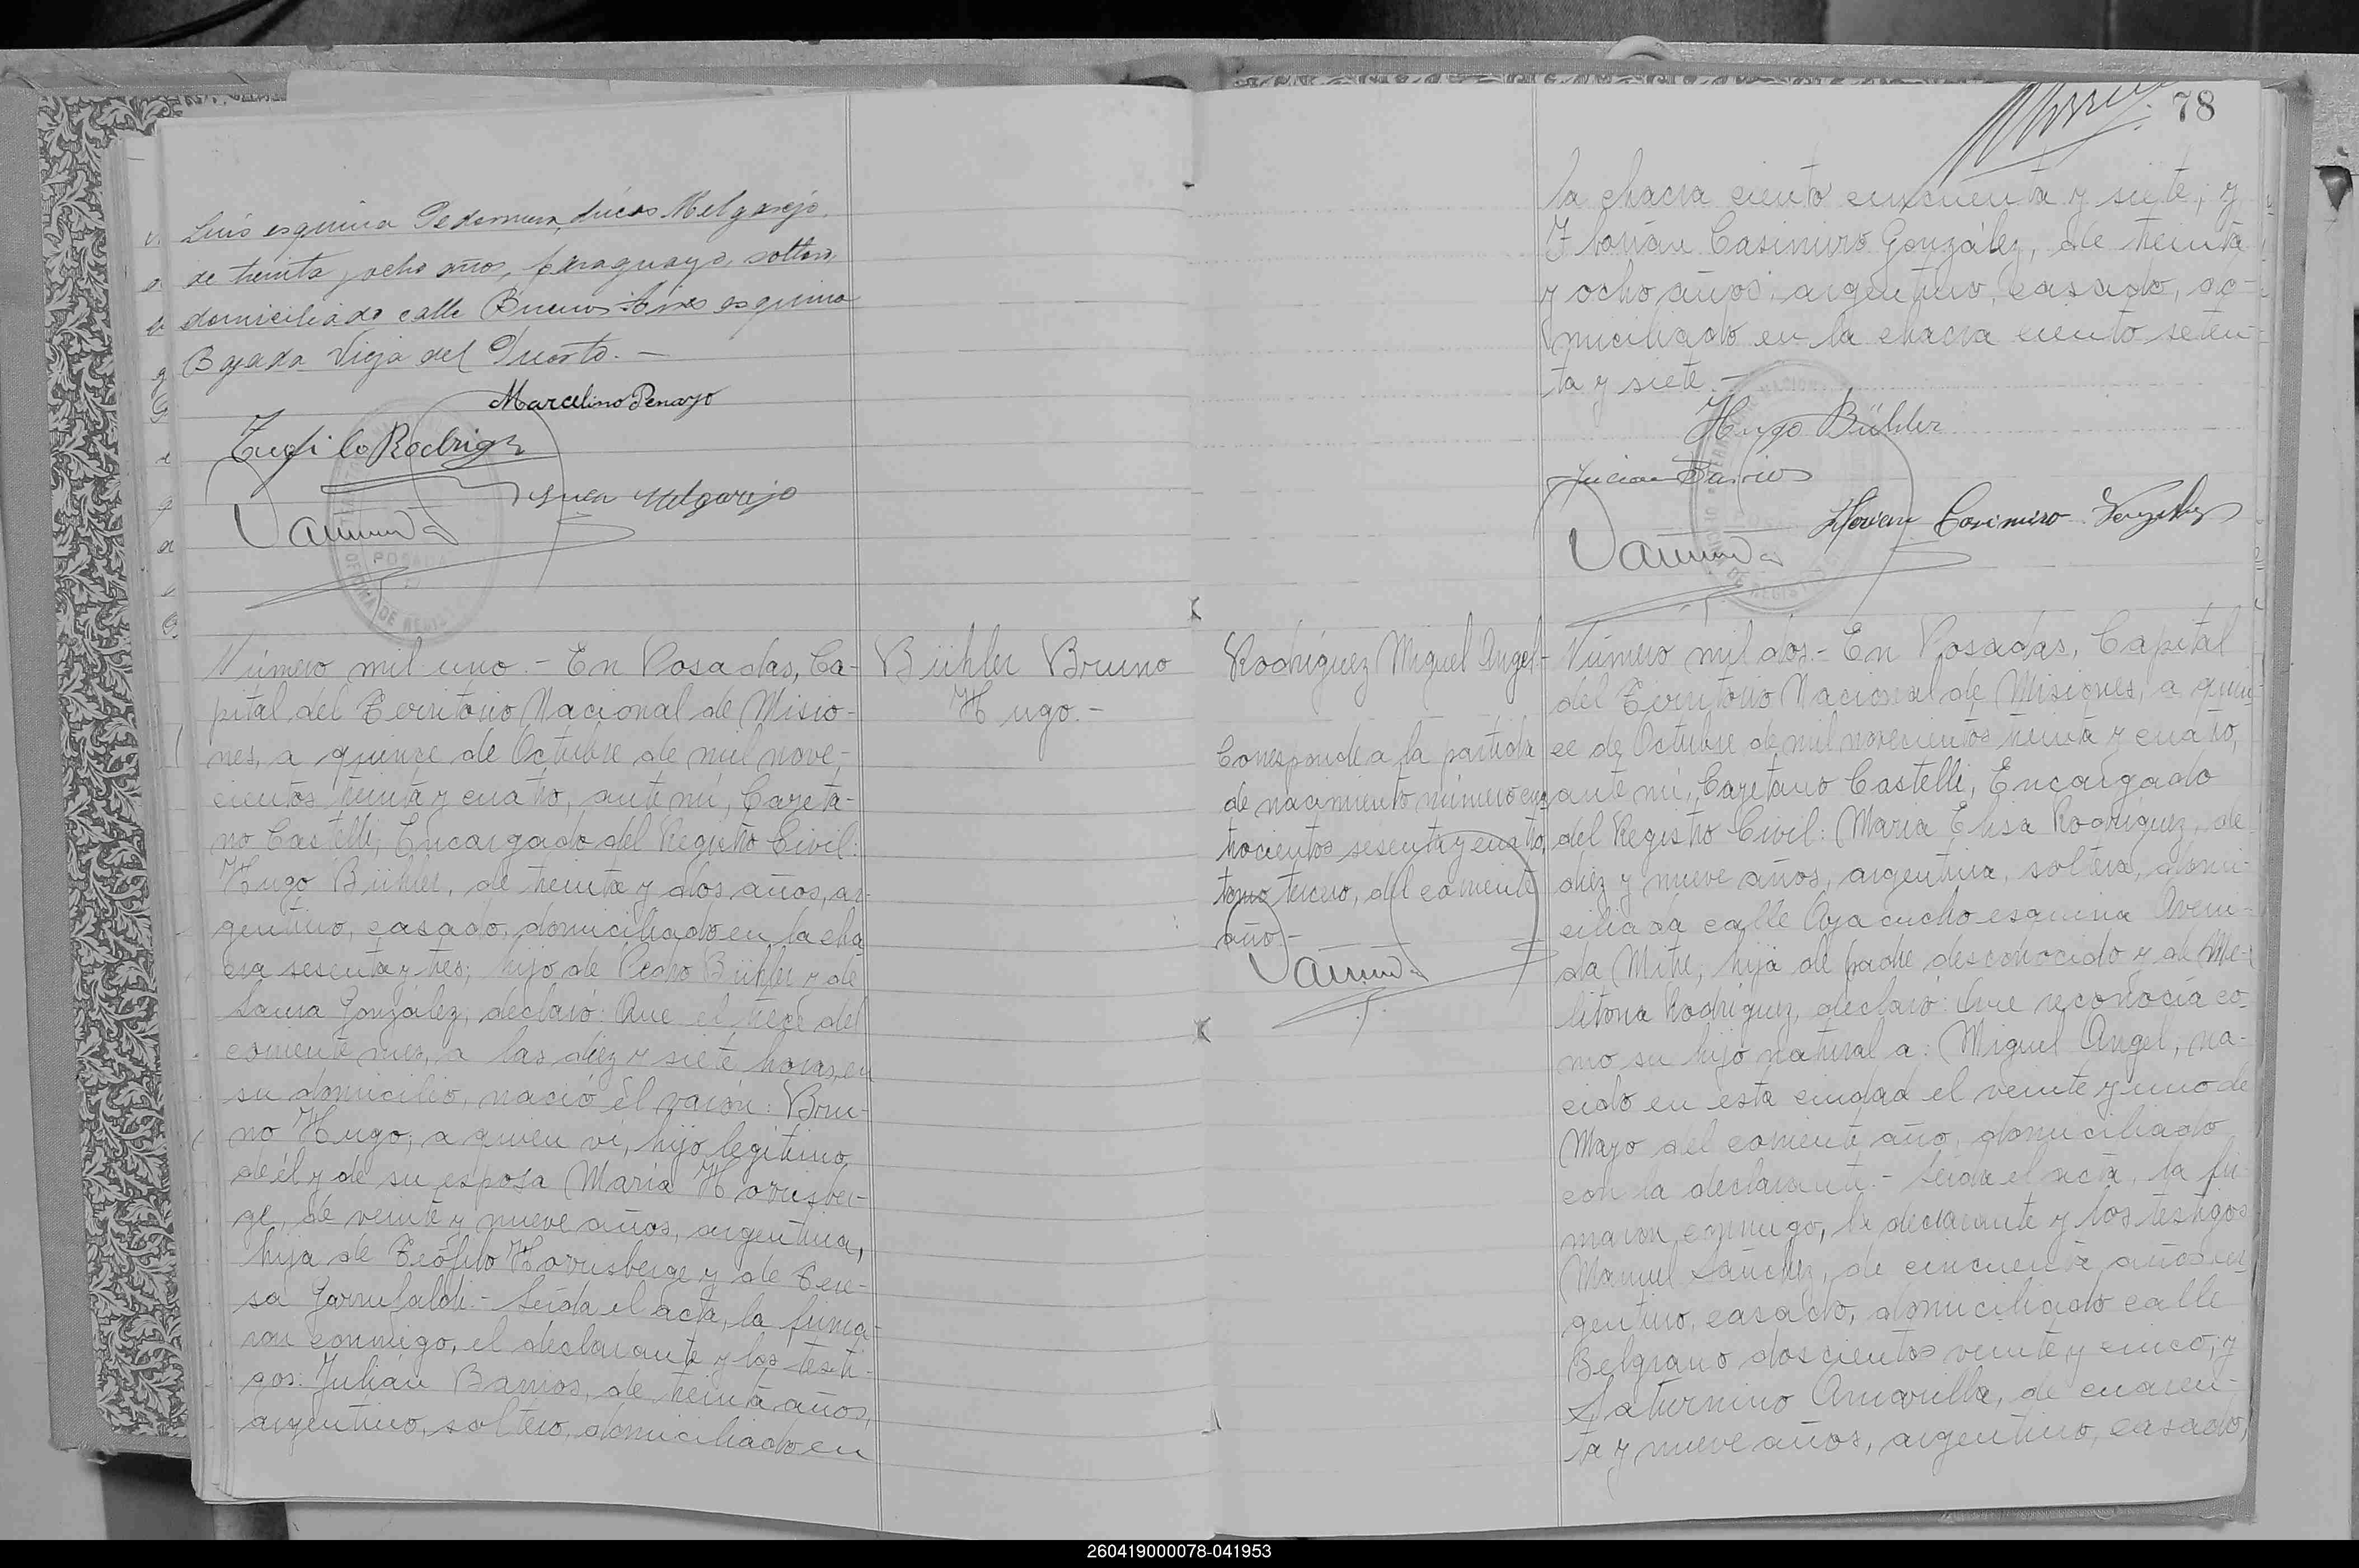 Luis esquina Pedernera, Lucas Melgarejo,
de treinta y ocho años, paraguayo, soltero,
domiciliado calle Buenos Aires esquina
Bajada Vieja del Puerto.-
Marcelino Penayo
Melgarejo
POSADAS
Número mil uno.- En Posadas, Ca-
pital del Territorio Nacional de Misio-
nes, a quince de Octubre de mil nove-
cientos treinta y cuatro, ante mí, Cayeta-
no Castelli, Encargado del Registro Civil:
Hugo Bühler, de treinta y dos años, ar-
gentino, casado, domiciliado en la cha
cra sesenta y tres; hijo de Pedro Bühler y de
Laura González, declaró: Que el trece del
corriente mes, a las diez y siete horas, en
su domicilio, nació el varón: Bru-
no Hugo, a quien ví, hijo legítimo
de él y de su esposa María Horrisber-
ge, de veinte y nueve años, argentina,
hija de Teófilo Horrisberge y de Tere-
sa
.- Leída el acta, la firma-
ron conmigo, el declarante y los testi-
gos: Julián Barrios, de treinta años,
argentino, soltero, domiciliado en
Bühler Bruno
Hugo.-
78
la chacra ciento cincuenta y siete; y
Florián Casimiro González, de treinta
y ocho años, argentino, casado, do-
miciliado en la chacra ciento seten-
ta y siete.-
Hugo Bühler
Julian Barrios
Florian Casimiro Gonzalez
Rodríguez Miguel Angel-
Corresponde a la partida
de nacimiento número cua
trocientos sesenta y cuatro,
tomo tercero, del corriente
año.-
Número mil dos.- En Posadas, Capital
del Territorio Nacional de Misiones, a quin-
ce de Octubre de mil novecientos treinta y cuatro,
ante mí, Cayetano Castelli, Encargado
del Registro Civil: María Elisa Rodríguez, de
diez y nueve años, argentina, soltera, domi-
ciliada calle Ayacucho esquina Aveni-
da Mitre, hija de padre desconocido y de Me-
litona Rodríguez, declaró: Que reconocía co-
mo su hijo natural a: Miguel Angel, na-
cido en esta ciudad el veinte y uno de
Mayo del corriente año, domiciliado
con la declarante.- Leída el acta, la fir-
maron conmigo, la declarante y los testigos
Manuel Sánchez, de cincuenta años, ar-
gentino, casado, domiciliado calle
Belgrano doscientos veinte y cinco; y
Saturnino Amarilla, de cuaren-
ta y nueve años, argentino, casado,
260419000078-041953